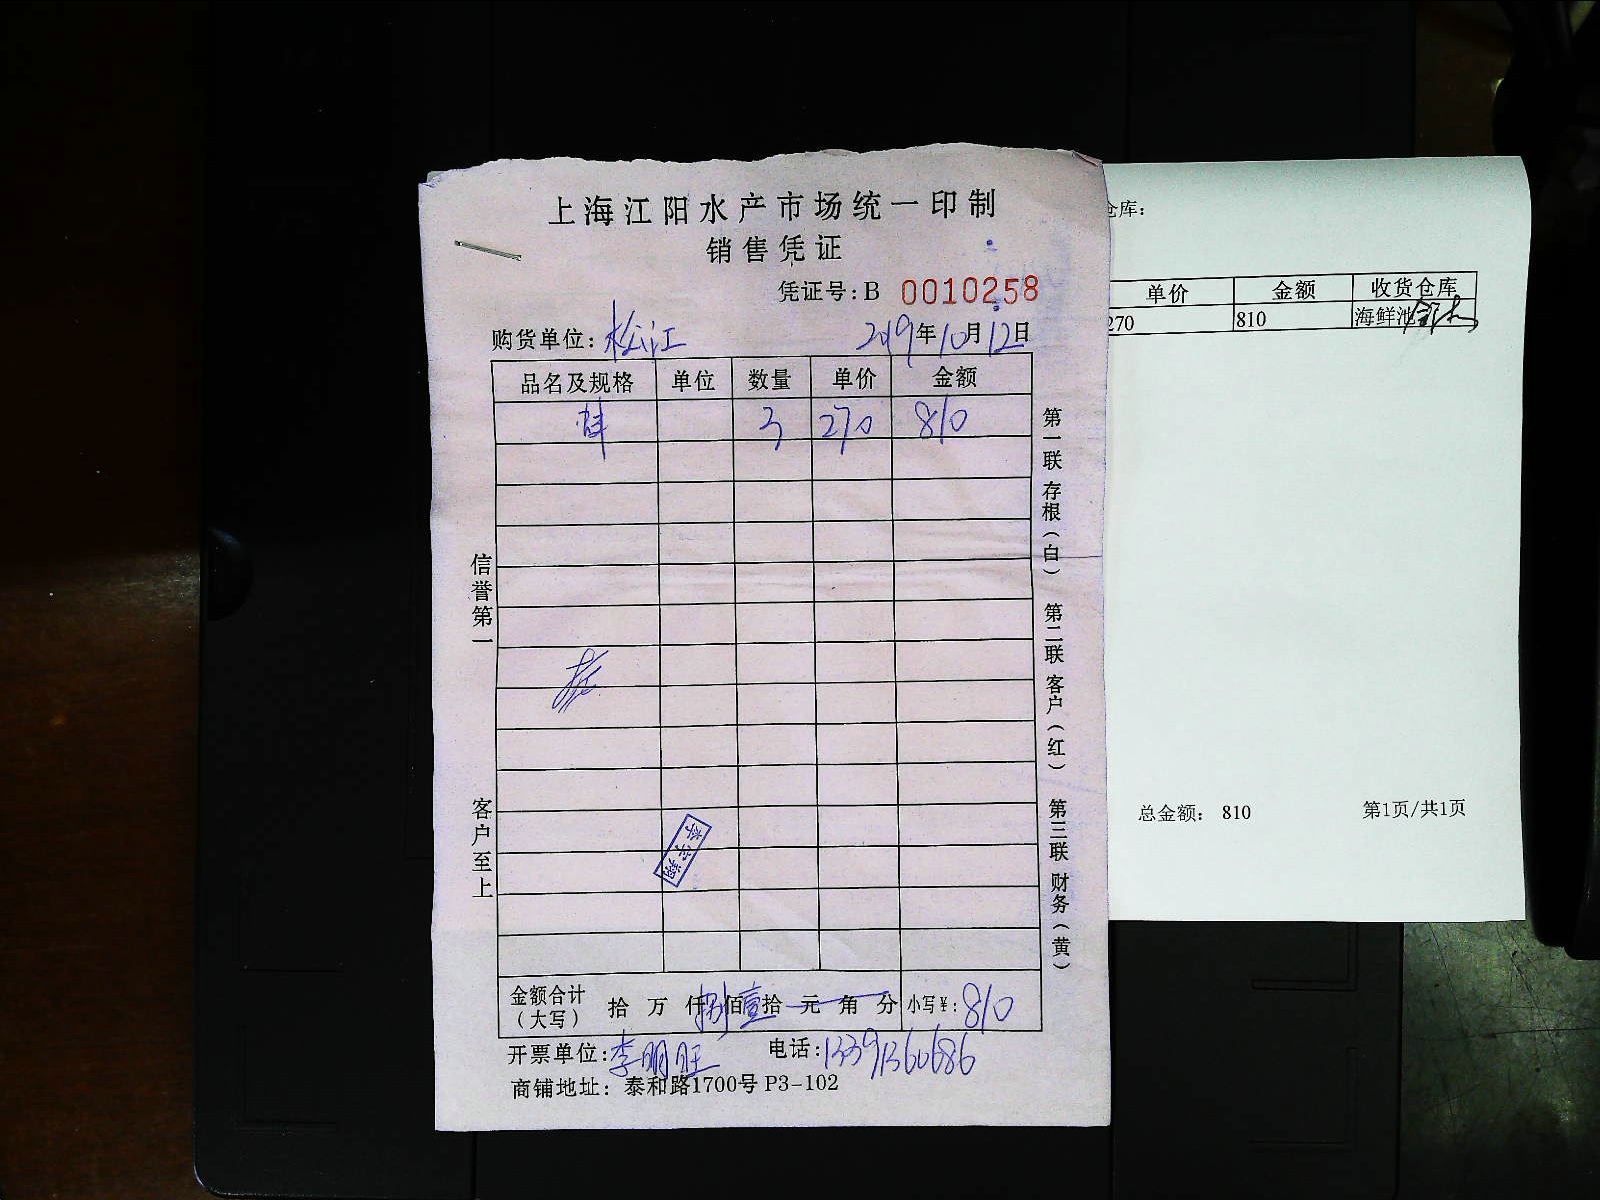 上海江阳水产市场统一印制
销售凭证
凭证号:B 0010258
购货单位:松江 2019年10月12日
品名及规格 单位 数量 单价 金额
3 270 810
信誉第一 客户至上
第一联 存根(白) 第二联 客户(红) 第三联 财务(黄)
李宇翔
金额合计(大写) 拾 万 仟 捌佰 壹拾 元 角 分 小写¥:810
开票单位:李明旺 电话:13391360686
商铺地址: 泰和路1700号 P3-102
仓库:
单价 金额 收货仓库
270 810 海鲜池
总金额: 810 第1页/共1页